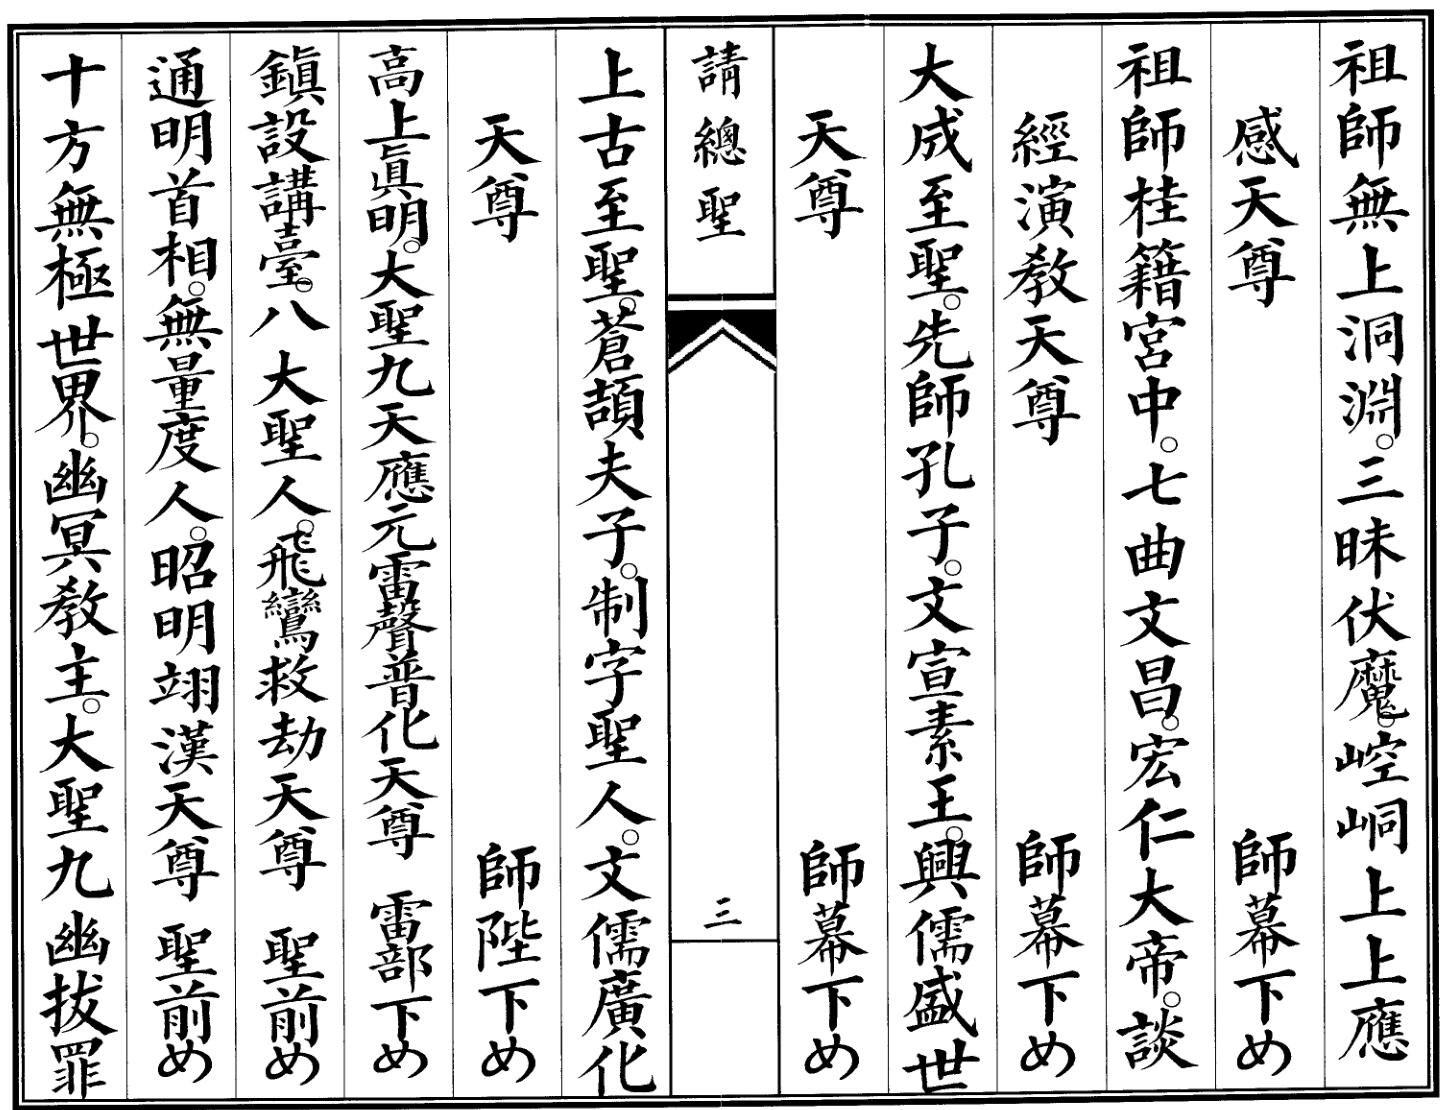 祖師無上洞淵。三昧伏魔。崆峒上上應
感天尊　師幕下め
祖師桂籍宮中。七曲文昌。宏仁大帝。談
經演教天尊　師幕下め
大成至聖。先師孔子。文宣素王。興儒盛世
天尊　師幕下め
請總聖　三
上古至聖。蒼頡夫子。制字聖人。文儒廣化
天尊　師陛下め
高上眞明。大聖九天應元雷聲普化天尊　雷部下め
鎭設講臺。八大聖人。飛鸞救劫天尊　聖前め
通明首相。無量度人。昭明翊漢天尊　聖前め
十方無極世界。幽冥教主。大聖九幽拔罪